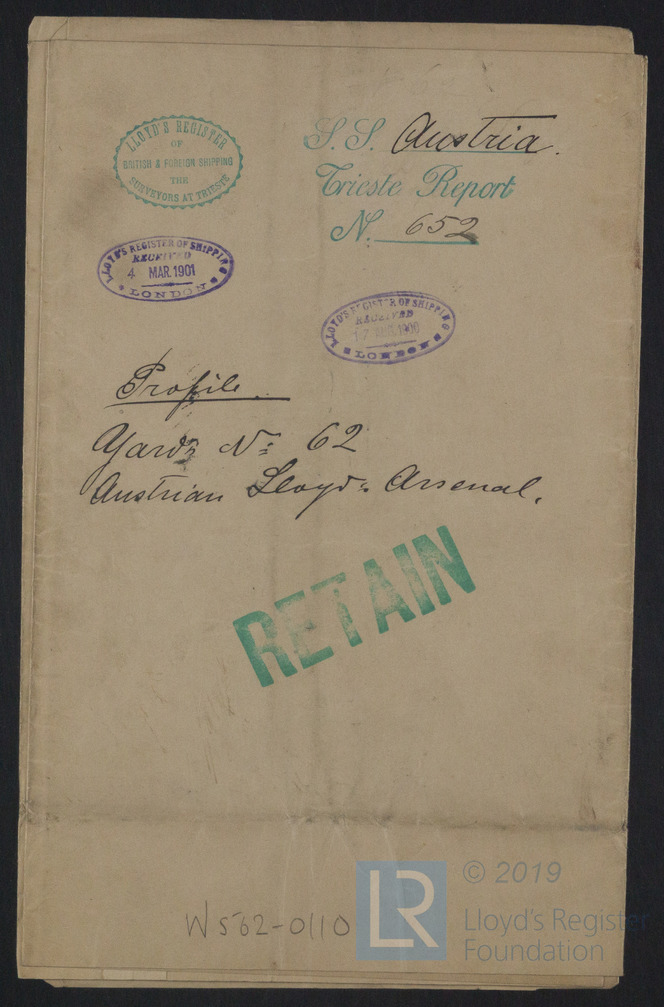 LLOYD'S REGISTER
OF
BRITISH & FOREIGN SHIPPING
THE
SURVEYORS AT TRIESTE
S.S. Austria.
Trieste Report
N. 652
LLOYD'S REGISTER OF SHIPPING
RECEIVED
4 MAR. 1901
LONDON
LLOYD'S REGISTER OF SHIPPING
RECEIVED
1900
LONDON
Profile
Yard Nº 62
Austrian Lloyd's Arsenal.
RETAIN
W562-0110
LR
© 2019
Lloyd's Register
Foundation